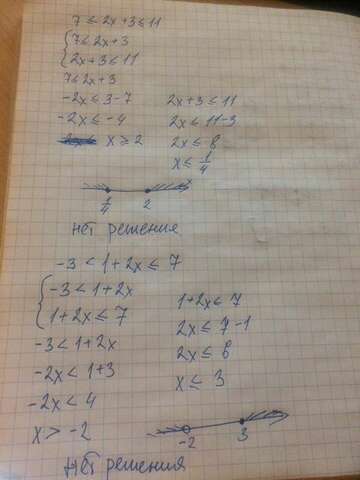 7 ≤ 2x+3 ≤ 11
7 ≤ 2x+3
2x+3 ≤ 11
7 ≤ 2x+3
-2x ≤ 3-7
-2x ≤ -4
x ≥ 2
2x+3 ≤ 11
2x ≤ 11-3
2x ≤ 8
x ≤ 1/4
1/4 2
нет решения
-3 < 1+2x ≤ 7
-3 < 1+2x
1+2x ≤ 7
-3 < 1+2x
-2x < 1+3
-2x < 4
x > -2
1+2x ≤ 7
2x ≤ 7-1
2x ≤ 6
x ≤ 3
-2 3
нет решения